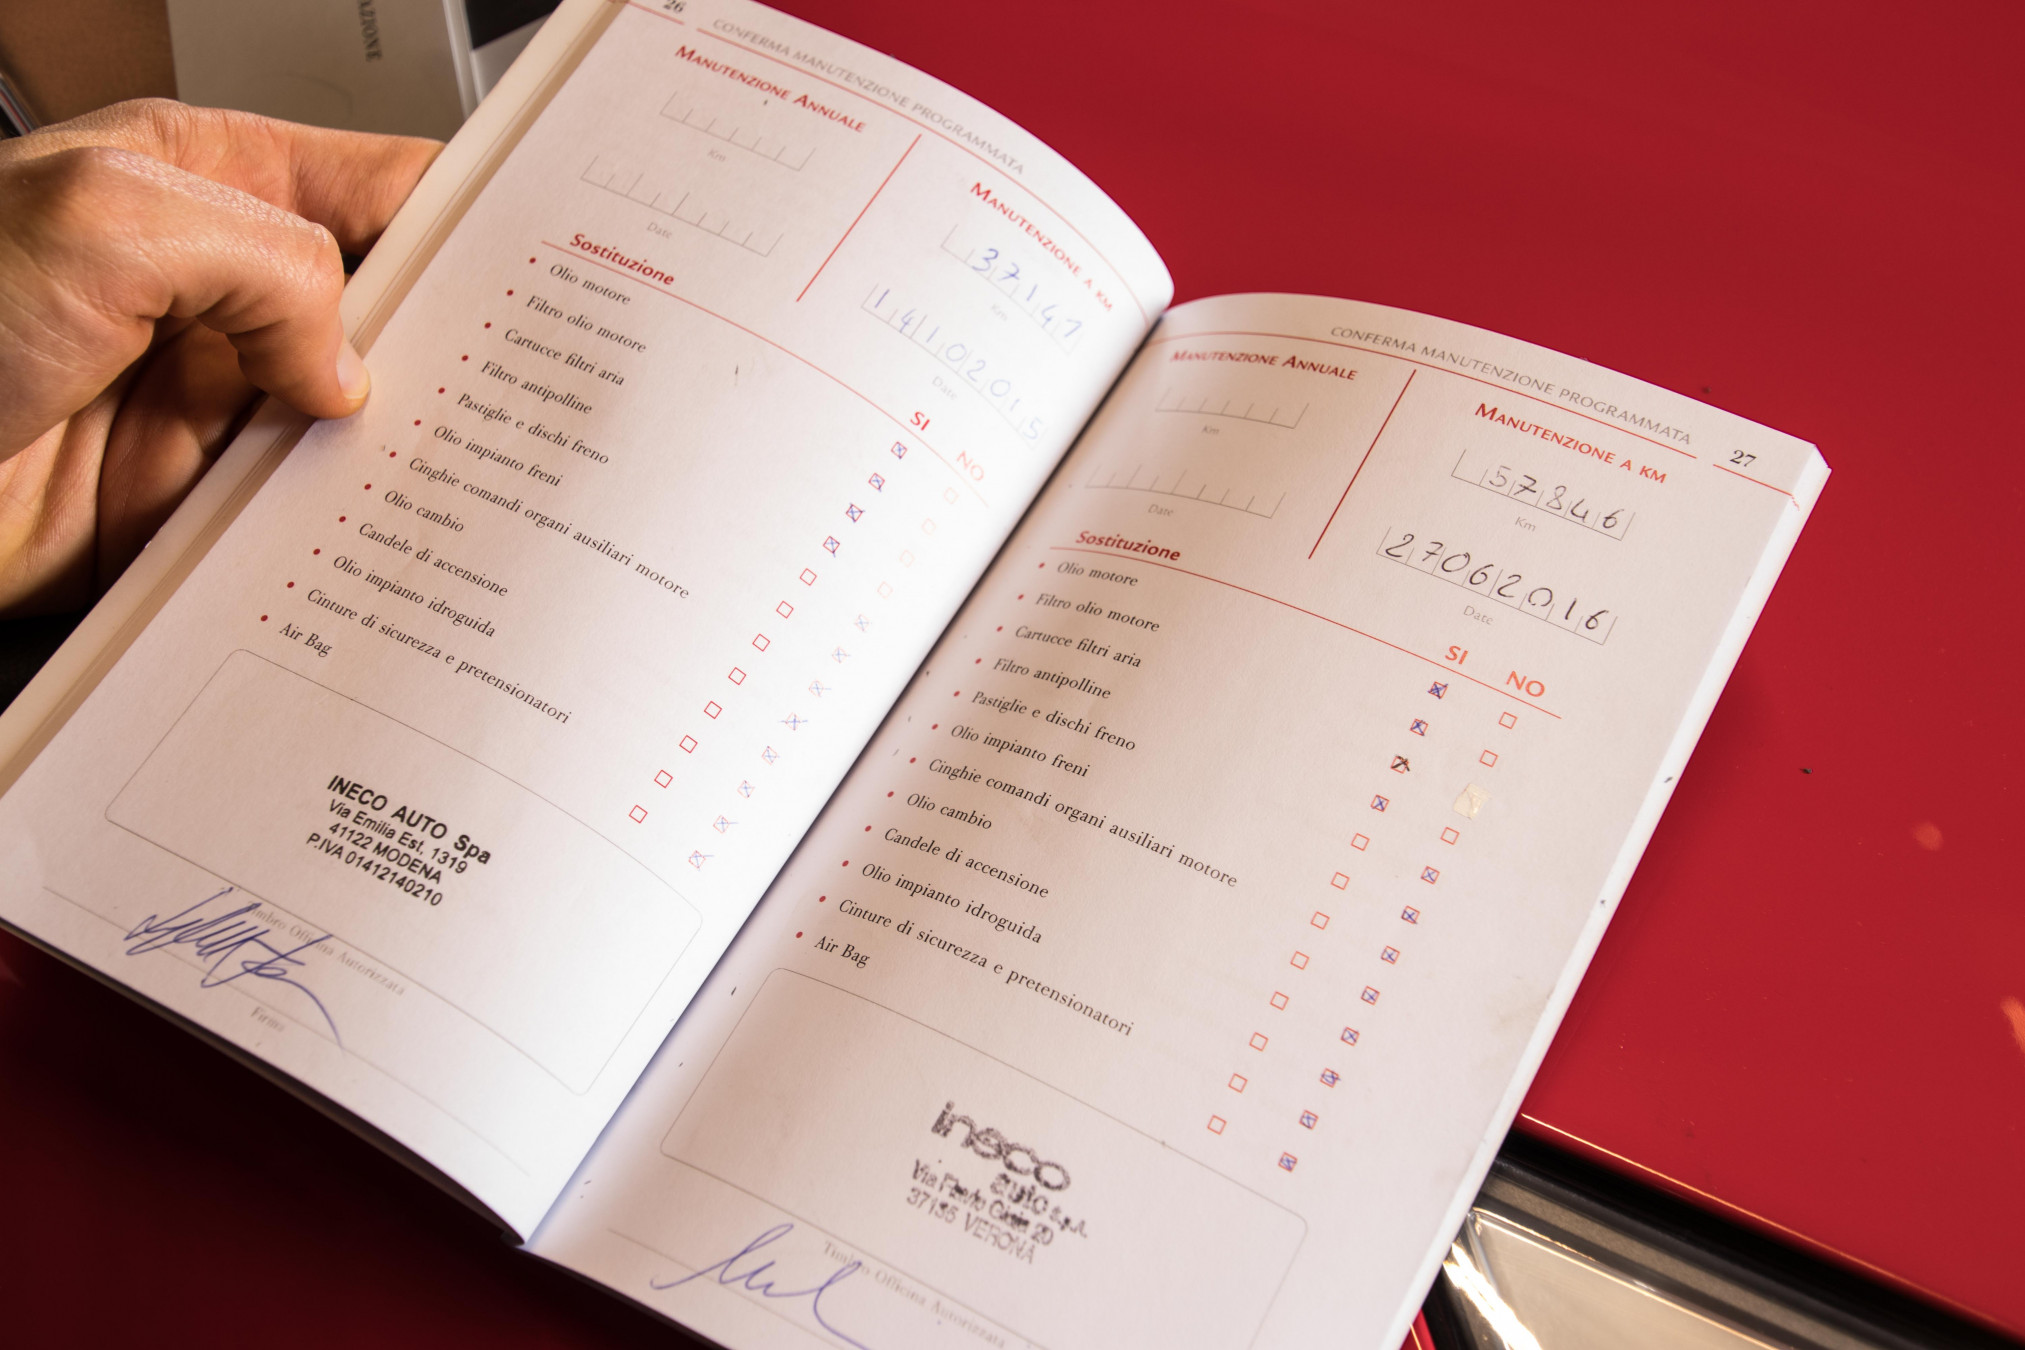 AZIONE
26
CONFERMA MANUTENZIONE PROGRAMMATA
MANUTENZIONE ANNUALE
Km
Date
MANUTENZIONE A KM
37147
Km
14102015
Date
Sostituzione
SI
NO
• Olio motore
• Filtro olio motore
• Cartucce filtri aria
• Filtro antipolline
• Pastiglie e dischi freno
• Olio impianto freni
• Cinghie comandi organi ausiliari motore
• Olio cambio
• Candele di accensione
• Olio impianto idroguida
• Cinture di sicurezza e pretensionatori
• Air Bag
INECO AUTO Spa
Via Emilia Est, 1319
41122 MODENA
P.IVA 01412140210
Timbro Officina Autorizzata
Firma
CONFERMA MANUTENZIONE PROGRAMMATA
27
MANUTENZIONE ANNUALE
Km
Date
MANUTENZIONE A KM
57846
Km
27062016
Date
Sostituzione
SI
NO
• Olio motore
• Filtro olio motore
• Cartucce filtri aria
• Filtro antipolline
• Pastiglie e dischi freno
• Olio impianto freni
• Cinghie comandi organi ausiliari motore
• Olio cambio
• Candele di accensione
• Olio impianto idroguida
• Cinture di sicurezza e pretensionatori
• Air Bag
ineco
auto s.p.A.
Via Flavio Gioia 20
37135 VERONA
Timbro Officina Autorizzata